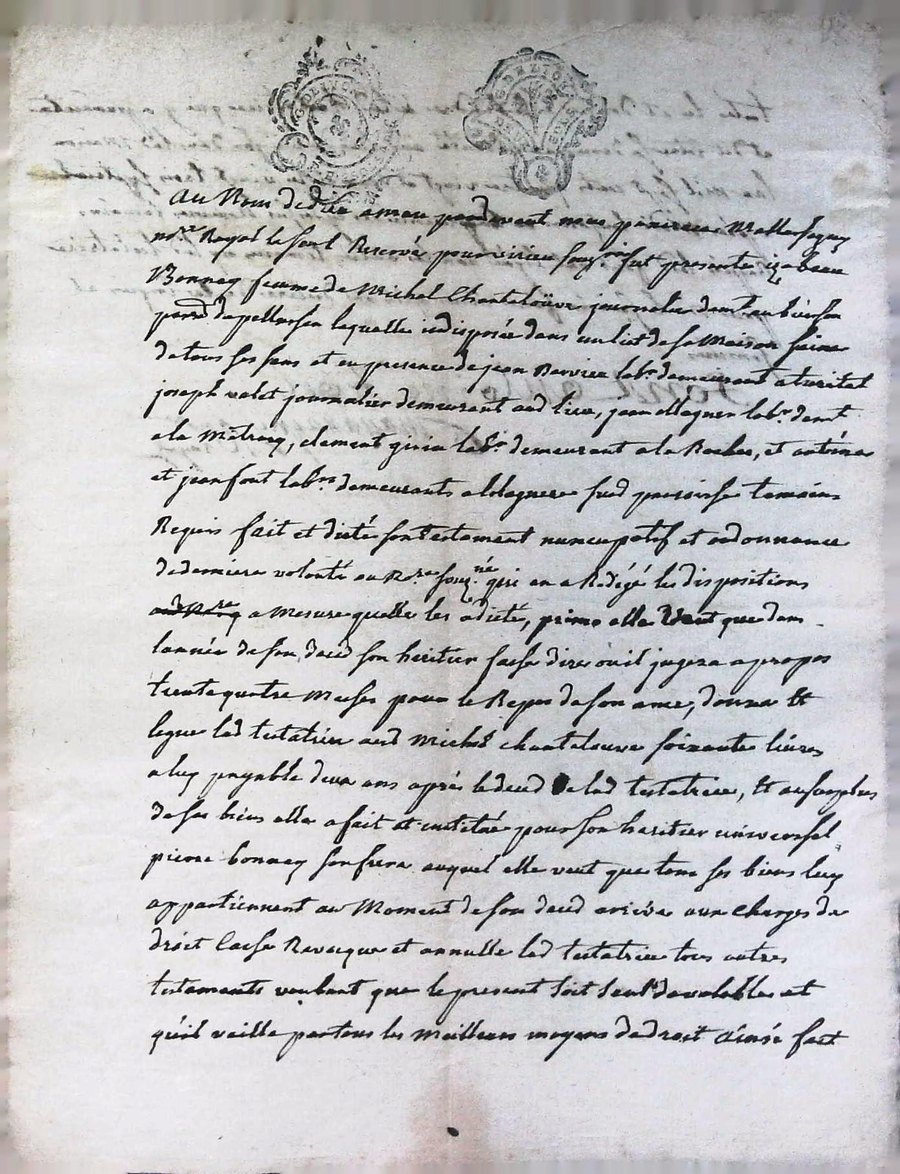 Au Nom de dieu amen pardevant nous
no.re Royal le seul Reservé pour virieu souz.né fut presente izabeau
Bonnay femme de Michel Chantelouve journalier dem.t au
parr.e de pellussin laquelle indisposée dans un lit de sa Maison saine
de tous ses sens et en presence de jean Bervier lab.r demeurant a
joseph valot journalier demeurant aud lieu, jean allaguer lab.r dem.t
a la clement girin lab.r demeurant a la Roche, et antoine
et jean font lab.rs demeurants a sud paroisse temoins
Requis fait et dicté son testament nuncupatif et ordonnance
de derniere volonté au N.re souz.né qui en a Redigé les dispositions
a Mesure quelle les a dicté, primo elle Veut que dans
lannée de son deced son heritier fasse dire ou il jugera a propos
trente quatre Messes pour le Repos de son ame, donne Et
legue lad testatrice aud Michel chantelouve soixante livres
a luy payable deux ans aprés le deced de lad testatrice, Et au surplus
de ses biens elle a fait et institué pour son heritier universel
pierre bonnay son frere auquel elle veut que tous ses biens luy
appartiennent au Moment de son deced arrivé aux charges de
droit Casse Revocque et annulle lad testatrice tous autres
testaments voulant que le present soit seul de valables et
qu'il vaille par tous les Meilleurs moyens de droit ainsi fait